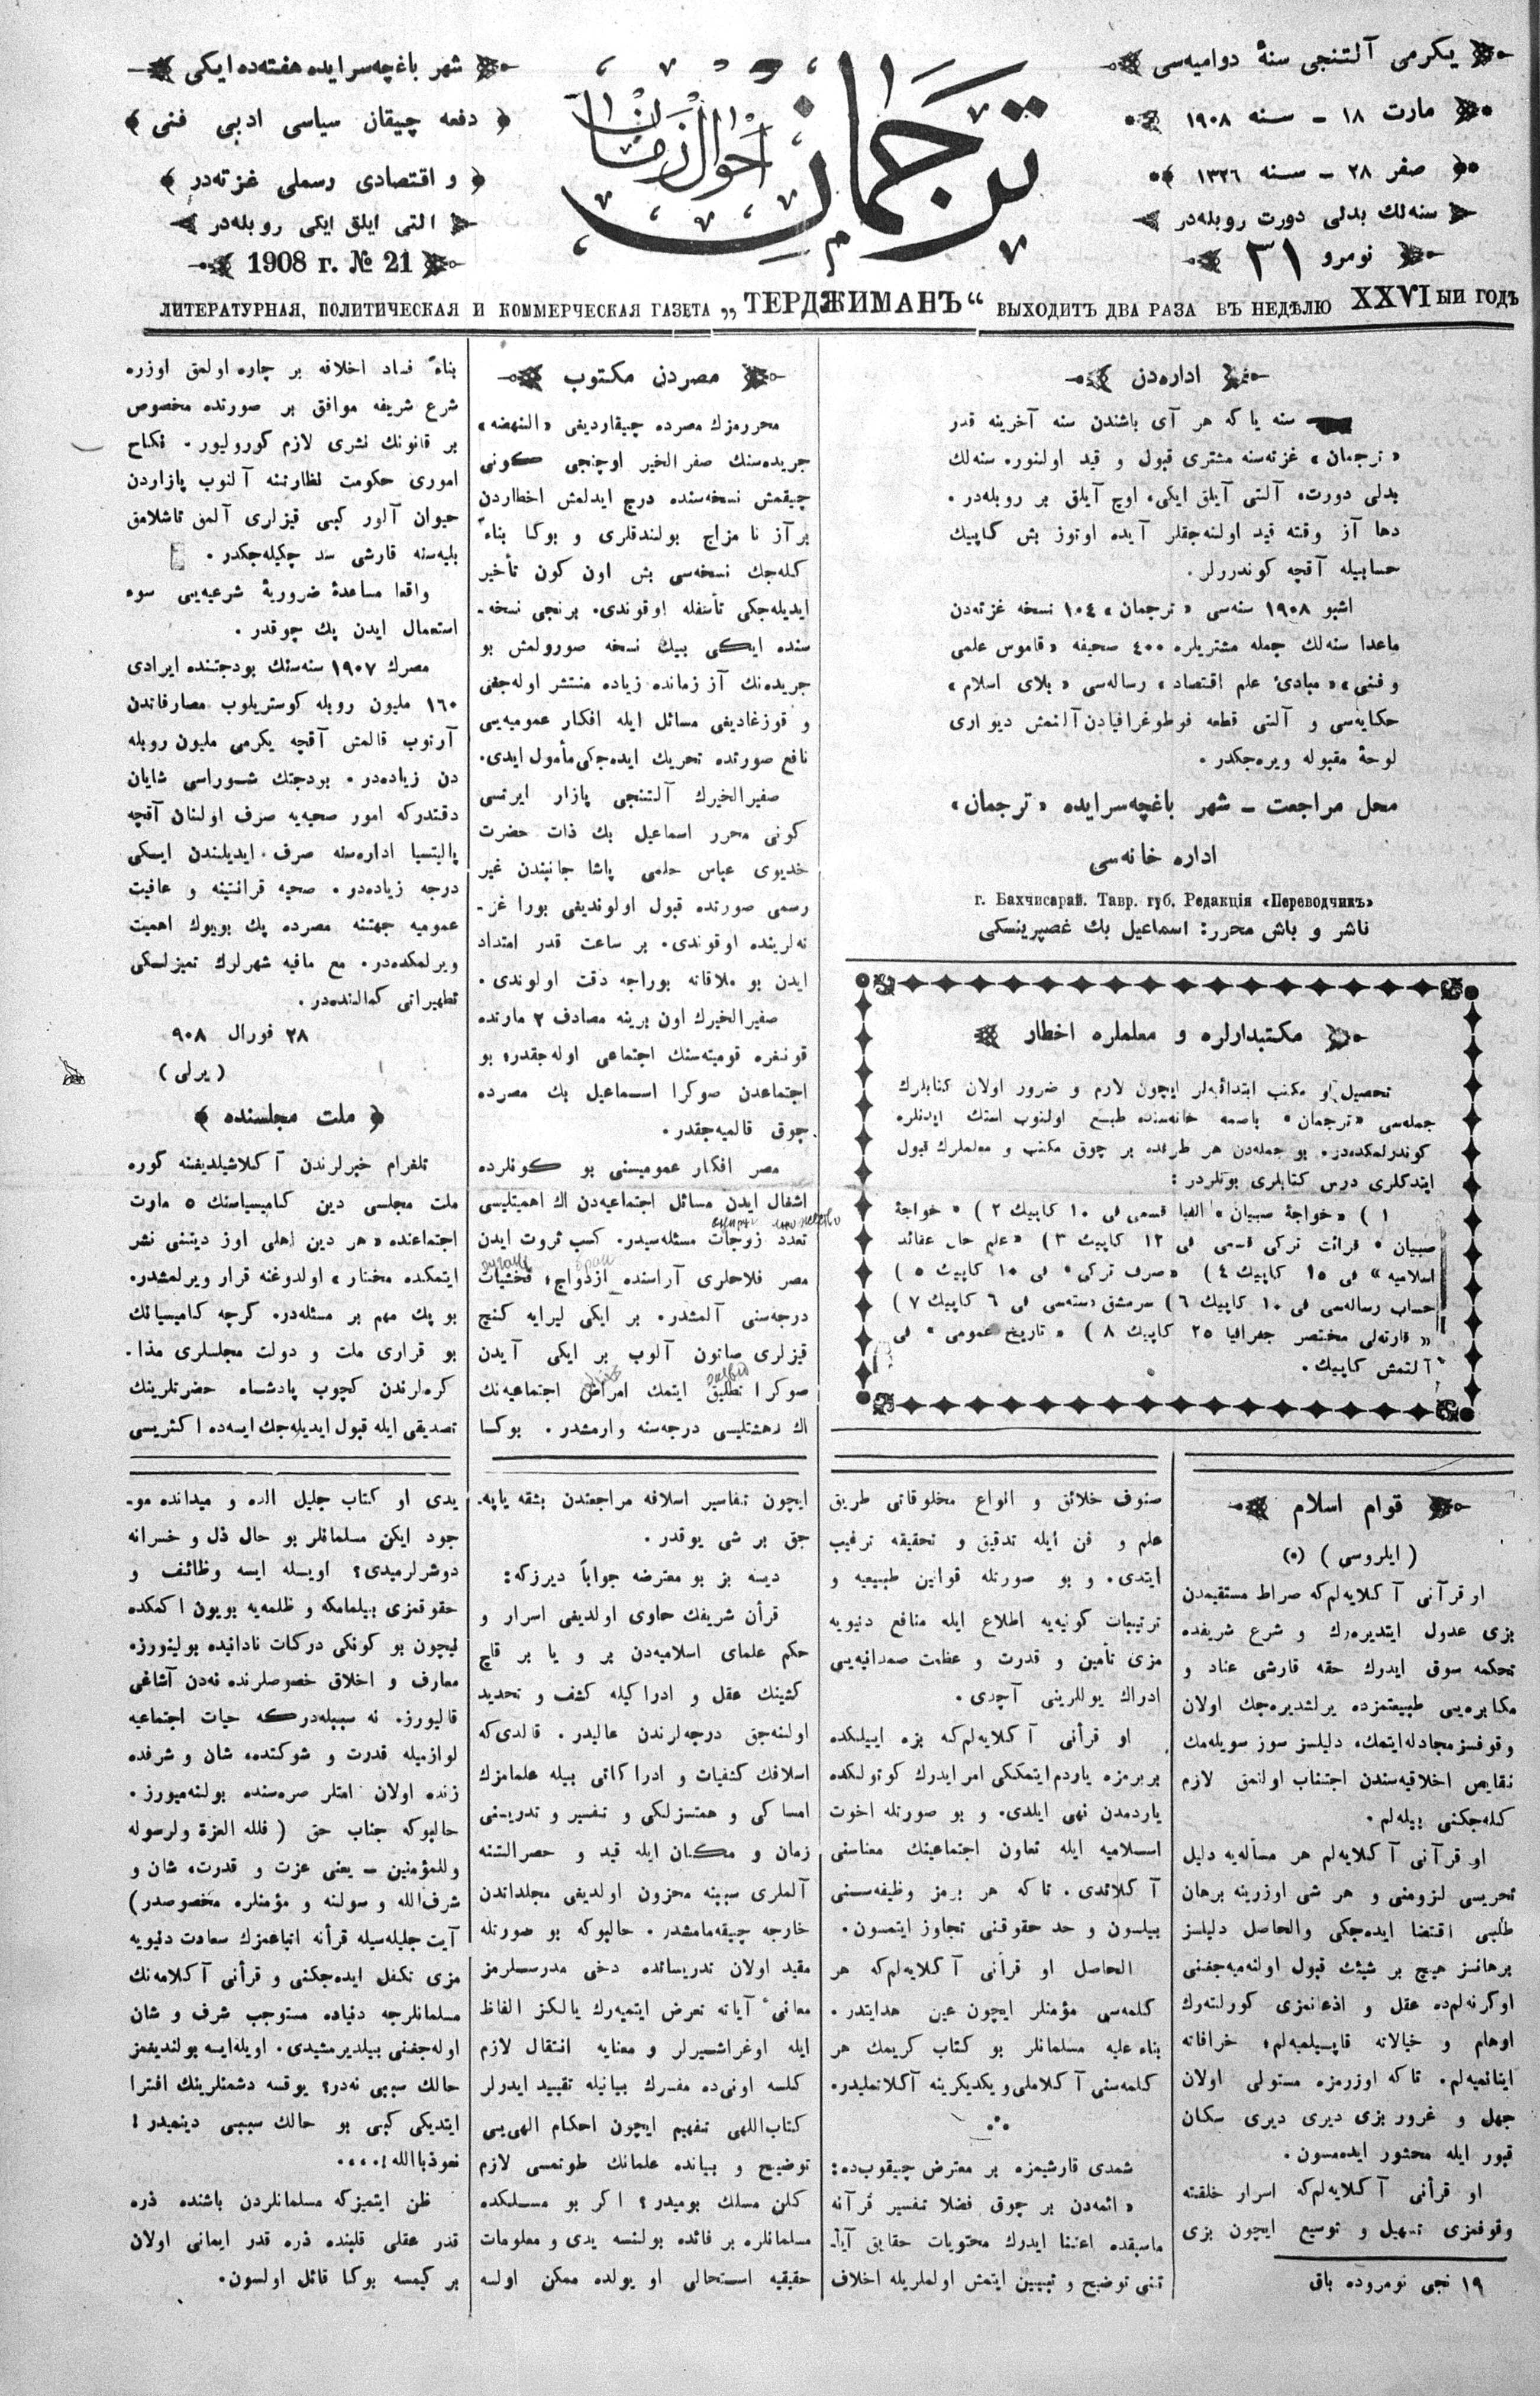 يكرمى آلتنجى سنهٔ دواميه‌سى
مارت ١٨ – سنه ١٩٠٨
صفر ٢٨ – سنه ١٣٢٦
سنه‌لك بدلى دورت روبله‌در
نومرو ٣١
ترجمان احوال زمان
شهر باغچه‌سرايده هفته‌ده ايكى
دفعه چيقان سياسى ادبى فنى
و اقتصادى رسملى غزته‌در
التى ايلق ايكى روبله‌در
1908 г. № 21
ЛИТЕРАТУРНАЯ, ПОЛИТИЧЕСКАЯ И КОММЕРЧЕСКАЯ ГАЗЕТА „ТЕРДЖИМАНЪ“ ВЫХОДИТЪ ДВА РАЗА ВЪ НЕДѢЛЮ XXVIЫИ ГОДЪ
اداره‌دن
سنه يا كه هر آى باشندن سنه آخرينه قدر
«ترجمان» غزته‌سنه مشترى قبول و قيد اولنور. سنه‌لك
بدلى دورت، آلتى آيلق ايكى، اوچ آيلق بر روبله‌در.
دها آز وقته قيد اولنه‌جقلر آيده اوتوز بش كاپيك
حسابيله آقچه كوندررلر.
اشبو ١٩٠٨ سنه‌سى «ترجمان» ١٠٤ نسخه غزته‌دن
ماعدا سنه‌لك جمله مشتريلره ٤٠٠ صحيفه «قاموس علمى
و فنى» «مبادئ علم اقتصاد» رساله‌سى «بلاى اسلام»
حكايه‌سى و آلتى قطعه فوطوغرافيادن آلنمش ديوارى
لوحهٔ مقبوله ويره‌جكدر.
محل مراجعت – شهر باغچه‌سرايده «ترجمان»
اداره خانه‌سى
г. Бахчисарай. Тавр. губ. Редакція «Переводчикъ»
ناشر و باش محرر: اسماعيل بك غصپرينسكى
مكتبدارلره و معلملره اخطار
تحصيل او مكتب ابتدائيه‌لر ايچون لازم و ضرور اولان كتابلرك
جمله‌سى «ترجمان» باصمه خانه‌سنده طبع اولنوب استك ايدنلره
كوندرلمكده‌در. بو جمله‌دن هر طرفده بر چوق مكتب و معلملرك قبول
ايتدكلرى درس كتابلرى بونلردر:
١ ) «خواجهٔ صبيان» الفبا قسمى فى ١٠ كاپيك ٢ ) «خواجهٔ
صبيان» قرائت تركى قسمى فى ١٢ كاپيك ٣ ) «علم حال عقائد
اسلاميه» فى ١٥ كاپيك ٤ ) «صرف تركى» فى ١٠ كاپيك ٥ )
حساب رساله‌سى فى ١٠ كاپيك ٦ ) سرمشق دسته‌سى فى ٦ كاپيك ٧ )
«قارته‌لى مختصر جغرافيا ٢٥ كاپيك ٨ ) «تاريخ عمومى» فى
آلتمش كاپيك.
مصردن مكتوب
محررمزك مصرده چيقارديغى «النهضه»
جريده‌سنك صفر الخير اوچنجى كونى
چيقمش نسخه‌سنده درج ايدلمش اخطاردن
برآز نا مزاج بولندقلرى و بوكا بناءً
كله‌جك نسخه‌سى بش اون كون تأخير
ايديله‌جكى تأسفله اوقوندى. برنجى نسخه-
سنده ايكى بيك نسخه صورولمش بو
جريده‌نك آز زمانده زياده منتشر اوله‌جغى
و قوزغاديغى مسائل ايله افكار عموميه‌يى
نافع صورتده تحريك ايده‌جكى مأمول ايدى.
صفيرالخيرك آلتنجى پازار ايرتسى
كونى محرر اسماعيل بك ذات حضرت
خديوى عباس حلمى پاشا جانبندن غير
رسمى صورتده قبول اولونديغى بورا غز-
ته‌لرينده اوقوندى. بر ساعت قدر امتداد
ايدن بو ملاقاته بوراجه دقت اولوندى.
صفيرالخيرك اون برينه مصادف ٢ مارتده
قونغره قوميته‌سنك اجتماعى اوله‌جقدر؛ بو
اجتماعدن صوكرا اسماعيل بك مصرده
چوق قالميه‌جقدر.
مصر افكار عموميسنى بو كونلرده
اشغال ايدن مسائل اجتماعيه‌دن اك اهميتليسى
تعدد زوجات مسئله‌سيدر. كسب ثروت ايدن
مصر فلاحلرى آراسنده ازدواج؛ فحشيات
درجه‌سنى آلمشدر. بر ايكى ليرايه كنج
قيزلرى صاتون آلوب بر ايكى آيدن
صوكرا تطليق ايتمك امراض اجتماعيه‌نك
اك دهشتليسى درجه‌سنه وارمشدر. بوكا
بناءً فساد اخلاقه بر چاره اولمق اوزره
شرع شريفه موافق بر صورتده مخصوص
بر قانونك نشرى لازم كورولیور. نكاح
امورى حكومت نظارتنه آلنوب پازاردن
حيوان آلور كبى قيزلرى آلمق تاشلامق
بليه‌سنه قارشى سد چكيله‌جكدر.
واقعا مساعدهٔ ضروريهٔ شرعيه‌يى سوء
استعمال ايدن پك چوقدر.
مصرك ١٩٠٧ سنه‌سنك بودجتنده ايرادى
١٦٠ مليون روبله كوستريلوب مصارفاتدن
آرتوب قالمش آقچه يكرمى مليون روبله
دن زياده‌در. بودجتك شوراسى شايان
دقتدركه امور صحيه‌يه صرف اولنان آقچه
پاليتسيا اداره‌سنه صرف ايديلندن ايكى
درجه زياده‌در. صحيه قرانتينه و عافيت
عموميه جهتنه مصرده پك بويوك اهميت
ويرلمكده‌در. مع مافيه شهرلرك تميزلكى
تطهيراتى كمالنده‌در.
٢٨ فورال ٩٠٨
(يرلى)
ملت مجلسنده
تلغرام خبرلرندن آكلاشيلديغنه كوره
ملت مجلسى دين كاميسياسنك ٥ مارت
اجتماعنده «هر دين اهلى اوز دينى نشر
ايتمكده مختار» اولدوغنه قرار ويرلمشدر.
بو پك مهم بر مسئله‌در. كرچه كاميسيانك
بو قرارى ملت و دولت مجلسلرى مذا-
كره‌لرندن كچوب پادشاه حضرتلرينك
تصديقى ايله قبول ايديله‌جك ايسه‌ده اكثريسى
قوام اسلام
(ايلروسى) (٠)
او قرآنى آكلايه‌لم كه صراط مستقيمدن
بزى عدول ايتديره‌رك و شرع شريفده
تحكمه سوق ايدرك حقه قارشى عناد و
مكابره‌يى طبيعتمزده يرلشديره‌جك اولان
وقوفسز مجادله ايتمك، دليلسز سوز سويله‌مك
نقايص اخلاقيه‌سندن اجتناب اولنمق لازم
كله‌جكنى بيله‌لم.
او قرآنى آكلايه‌لم هر مسأله‌يه دليل
تحريسى لزومنى و هر شى اوزرينه برهان
طلبى اقتضا ايده‌جكى والحاصل دليلسز
برهانسز هيچ بر شيئك قبول اولنه‌ميه‌جغنى
اوكرنه‌لم‌ده عقل و اذعانمزى كورلته‌رك
اوهام و خيالاته قاپيلميه‌لم؛ خرافاته
اينانميه‌لم. تا كه اوزرمزه مستولى اولان
جهل و غرور بزى ديرى ديرى سكان
قبور ايله محشور ايده‌مسون.
او قرآنى آكلايه‌لم كه اسرار خلقته
وقوفمزى تسهيل و توسيع ايچون بزى
١٩ نجى نومروده باق
صنوف خلائق و انواع مخلوقاتى طريق
علم و فن ايله تدقيق و تحقيقه ترغيب
ايتدى. و بو صورتله قوانين طبيعيه و
ترتيبات كونيه‌يه اطلاع ايله منافع دنيويه
مزى تأمين و قدرت و عظمت صمدانيه‌يى
ادراك يوللرينى آچدى.
او قرآنى آكلايه‌لم كه بزه اييلكده
بربرمزه ياردم ايتمككى امر ايدرك كوتولكده
ياردمدن نهى ايلدى. و بو صورتله اخوت
اسلاميه ايله تعاون اجتماعينك معناسنى
آكلاتدى. تا كه هر برمز وظيفه‌سنى
بيلسون و حد حقوقنى تجاوز ايتمسون.
الحاصل او قرآنى آكلايه‌لم كه هر
كلمه‌سى مؤمنلر ايچون عين هدايتدر.
بناء عليه مسلمانلر بو كتاب كريمك هر
كلمه‌سنى آكلاملى و يكديكرينه آكلاتمليدر.
شمدى قارشيمزه بر معترض چيقوب‌ده:
«ائمه‌دن بر چوق فضلا تفسير قرآنه
ماسبقده اعتنا ايدرك محتويات حقايق آيا-
تنى توضيح و تبيين ايتمش اولملريله اخلاف
ايچون تفاسير اسلافه مراجعتدن بشقه ياپه-
جق بر شى يوقدر.
ديسه بز بو معترضه جواباً ديرزكه:
قرآن شريفك حاوى اولديغى اسرار و
حكم علماى اسلاميه‌دن بر و يا بر قاچ
كشينك عقل و ادراكيله كشف و تحديد
اولنه‌جق درجه‌لرندن عاليدر. قالدى كه
اسلافك كشفيات و ادراكاتى بيله علمامزك
امساكى و همتسزلكى و تفسير و تدريسنى
زمان و مكان ايله قيد و حصر التنه
آلملرى سببنه مخزون اولديغى مجلداتدن
خارجه چيقه‌مامشدر. حالبوكه بو صورتله
مقيد اولان تدريساتده دخى مدرسلرمز
معانىٔ آياته تعرض ايتميه‌رك يالكز الفاظ
ايله اوغراشييرلر و معنايه انتقال لازم
كلسه اونى‌ده مفسرك بيانيله تقييد ايدرلر
كتاب‌اللهى تفهيم ايچون احكام الهى‌يى
توضيح و بيانده علمانك طوتمسى لازم
كلن مسلك بوميدر؟ اكر بو مسلكده
مسلمانلره بر فائده بولنسه يدى و معلومات
حقيقيه استحالى او يولده ممكن اولسه
يدى او كتاب جليل الده و ميدانده مو-
جود ايكن مسلمانلر بو حال ذل و خسرانه
دوشرلرميدى؟ اويله ايسه وظائف و
حقوقمزى بيلمامكه و ظلمه‌يه بويون اكمكده
نيچون بو كونكى دركات نادانيده بولينورز.
معارف و اخلاق خصوصلرنده نه‌دن آشاغى
قاليورز. نه سببله‌دركه حيات اجتماعيه
لوازميله قدرت و شوكتده، شان و شرفده
زنده اولان امتلر صره‌سنده بولنه‌ميورز.
حالبوكه جناب حق (فلله العزة ولرسوله
وللمؤمنين – يعنى عزت و قدرت، شان و
شرف الله و سولنه و مؤمنلره مخصوصدر)
آيت جليله‌سيله قرآنه اتباعمزك سعادت دنيويه
مزى تكفل ايده‌جكنى و قرآنى آكلامه‌نك
مسلمانلرجه دنياده مستوجب شرف و شان
اوله‌جغنى بيلديرمشيدى. اويله‌ايسه بولنديغمز
حالك سببى نه‌در؟ يوقسه دشمنلرينك افترا
ايتديكى كبى بو حالك سببى دينميدر!
نعوذ باالله!....
ظن ايتميزكه مسلمانلردن باشنده ذره
قدر عقلى قلبنده ذره قدر ايمانى اولان
بر كيمسه بوكا قائل اولسون.